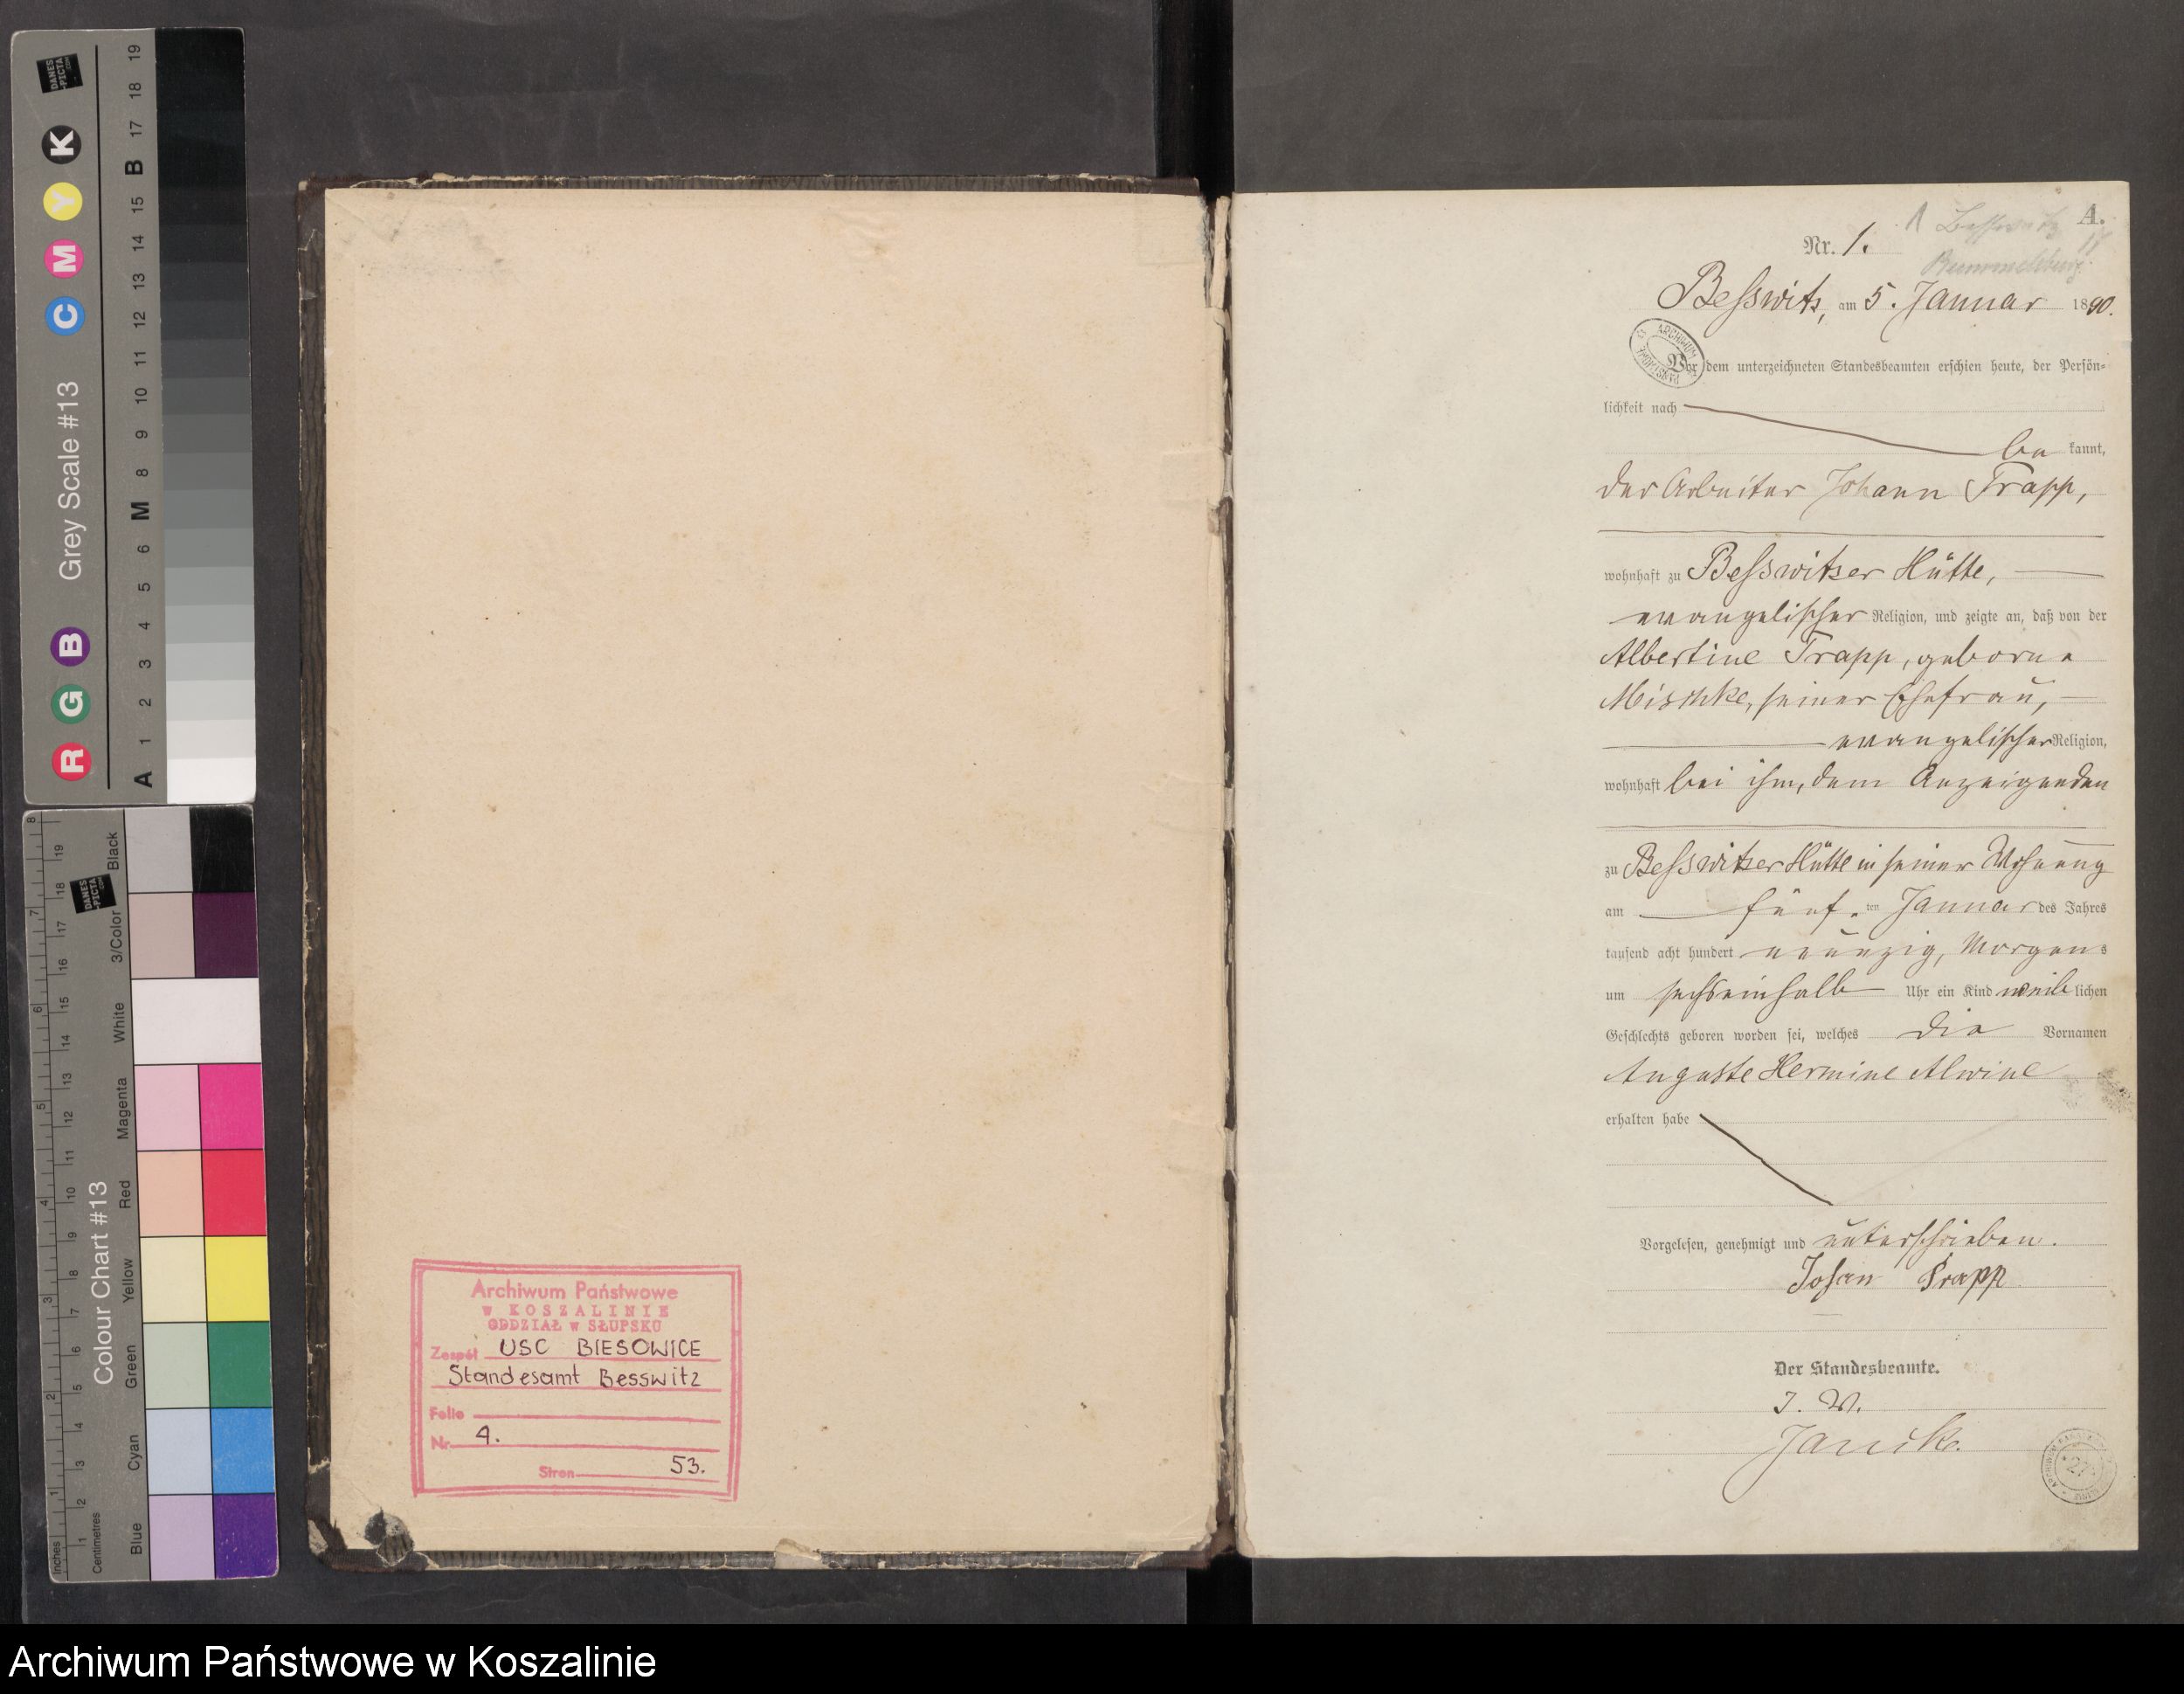 Grey Scale #13
DANES
-PICTA
.COM
R G B C M Y K
A 1 2 3 4 5 6 M 8 9 10 11 12 13 14 15 B 17 18 19
Colour Chart #13
DANES
-PICTA
.COM
Inches
Centimetres
Blue Cyan Green Yellow Red Magenta White 3/Color Black
Archiwum Państwowe
w KOSZALINIE
ODDZIAŁ w SŁUPSKU
Zespół USC BIESOWICE
Standesamt Besswitz
Folio
Nr 4.
Stron 53.
A.
1 Besswitz
Nr. 1.
Rummelsburg
Beßwitz, am 5. Januar 1890.
Vor dem unterzeichneten Standesbeamten erschien heute, der Persön-
lichkeit nach
be kannt,
der Arbeiter Johann Trapp,
wohnhaft zu Beßwitzer Hütte,
evangelischer Religion, und zeigte an, daß von der
Albertine Trapp, geborne
Mischke, seiner Ehefrau,
evangelischer Religion,
wohnhaft bei ihm, dem Anzeigenden
zu Beßwitzer Hütte in seiner Wohnung
am fünf ten Januar des Jahres
tausend acht hundert neunzig, Morgens
um sechseinhalb Uhr ein Kind weib lichen
Geschlechts geboren worden sei, welches die Vornamen
Auguste Hermine Alwine
erhalten habe
Vorgelesen, genehmigt und unterschrieben.
Johan Trapp
Der Standesbeamte.
I. V.
Archiwum Państwowe w Koszalinie